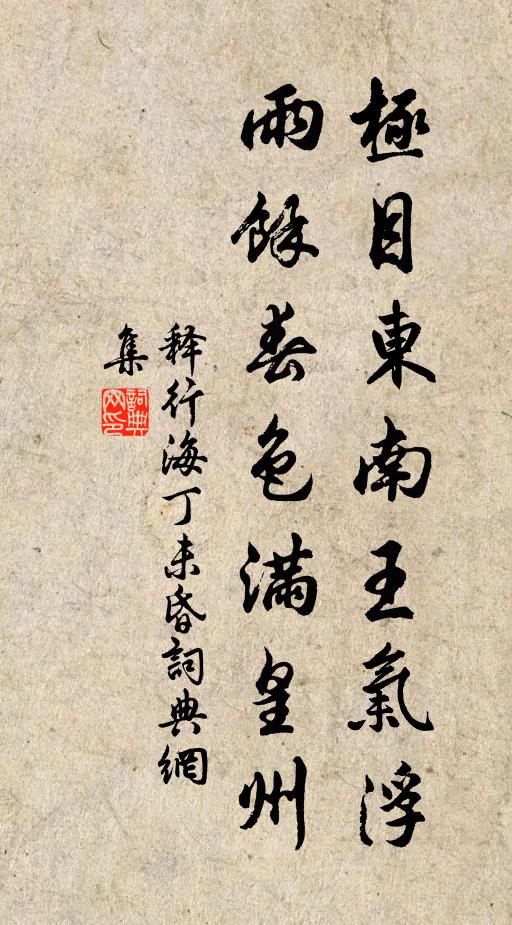 極目東南王氣浮
雨餘春色滿皇州
释行海丁未昏詞典網
集
詞典
网印